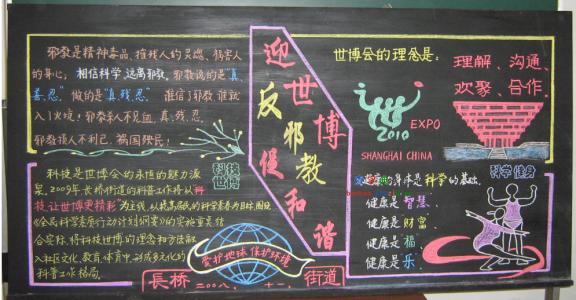 邪教是精神毒品，摧残人的灵魂、伤害人
的身心；相信科学，远离邪教。邪教说的是"真、
善、忍" 做的是"真、残、忍" 谁信了邪教谁就
入了火坑！邪教杀人不见血，真、残、忍。
邪教损人不利己，祸国殃民！
科技
世博
科技是世博会的永恒的魅力源
泉。2009年长桥街道的科普工作将以科
技，让世博更精彩为主线，以提高居民的科学素养为目标，围绕
《全民科学素质行动计划纲要》的实施重点结
合实际，将科技世博的理念和方法融
入社区文化、教育、体育中，形成多元化的
科普工作格局。
迎世博
反邪教
促和谐
爱护地球 保护环境
長桥 二〇〇八、十一、 街道
世博会的理念是：
理解、沟通、
欢聚、合作。
2010
EXPO
SHANGHAI CHINA
科学健身
健康的身体是科学的基础
健康是智慧、
健康是财富、
健康是福、
健康是乐、